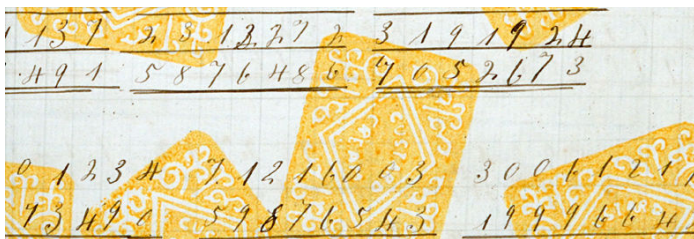 1137 2312272 3191924
491 5876486 7052673
01234 71216003 30011211
73490 59876543 1999664